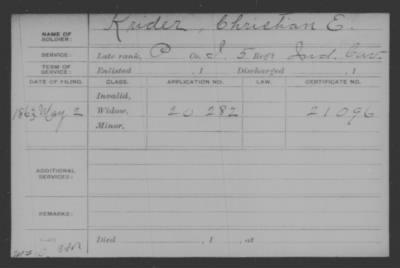 NAME OF SOLDIER: Krider, Christian E.
SERVICE: Late rank, P Co. I, 5 Reg't Ind. Cav.
TERM OF SERVICE: Enlisted , 1 Discharged , 1
DATE OF FILING. CLASS. APPLICATION NO. LAW. CERTIFICATE NO.
Invalid,
1863 May 2 Widow, 20 282 21096
Minor,
ADDITIONAL SERVICES:
REMARKS:
Died , 1 , at